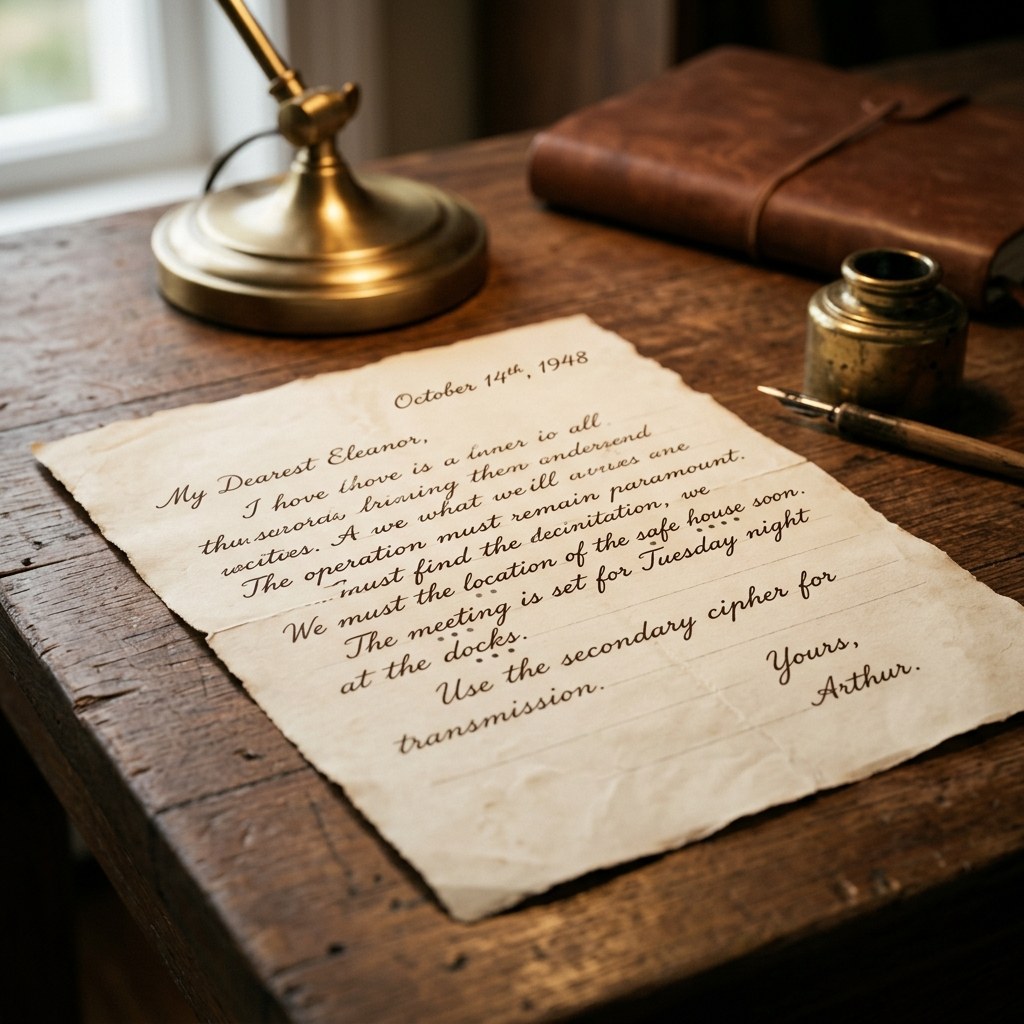 October 14th, 1948
My Dearest Eleanor,
I hove is a inner io all
them
A we what we
The operation must remain paramount.
must find the decinitation, we
We must the location of the safe house soon.
The meeting is set for Tuesday night
at the docks.
Use the secondary cipher for
transmission.
Yours,
Arthur.